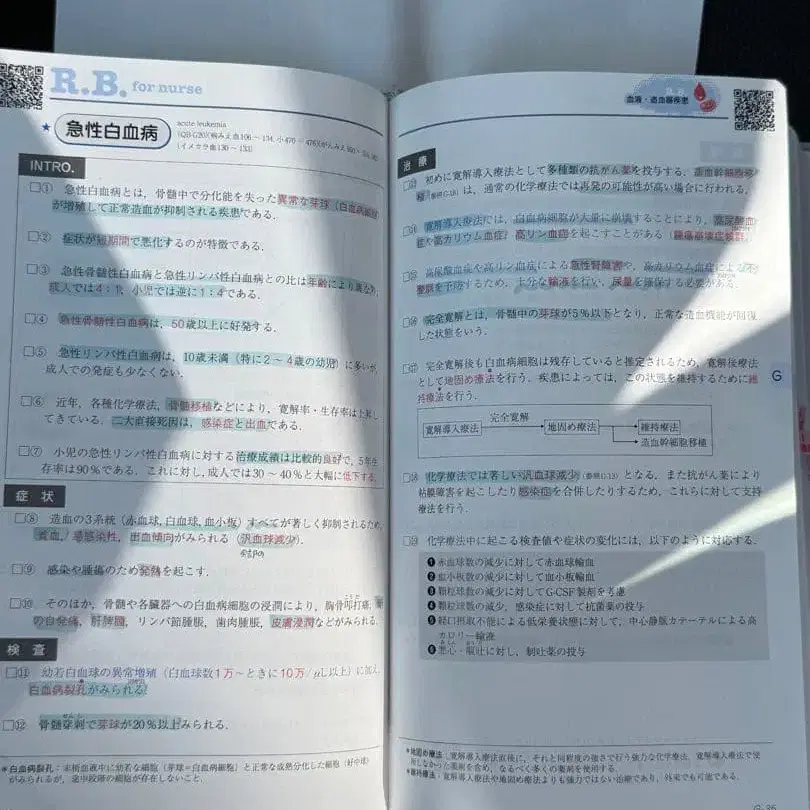 R.B. for nurse
急性白血病
acute leukemia
(イメカラ血130～133)
INTRO.
□① 急性白血病とは，骨髄中で分化能を失った異常な芽球（白血病細胞）
が増殖して正常造血が抑制される疾患である．
□② 症状が短期間で悪化するのが特徴である．
□③ 急性骨髄性白血病と急性リンパ性白血病との比は年齢により異なり，
成人では4：1，小児では逆に1：4である．
□④ 急性骨髄性白血病は，50歳以上に好発する．
□⑤ 急性リンパ性白血病は，10歳未満（特に2～4歳の幼児）に多いが，
成人での発症も少なくない．
□⑥ 近年，各種化学療法，骨髄移植などにより，寛解率・生存率は上昇し
てきている．二大直接死因は，感染症と出血である．
□⑦ 小児の急性リンパ性白血病に対する治療成績は比較的良好で，5年生
存率は90％である．これに対し，成人では30～40％と大幅に低下する．
症状
□⑧ 造血の3系統（赤血球，白血球，血小板）すべてが著しく抑制されるため，
貧血，易感染性，出血傾向がみられる（汎血球減少）．
□⑨ 感染や腫瘍のため発熱を起こす．
□⑩ そのほか，骨髄や各臓器への白血病細胞の浸潤により，胸骨叩打痛，
の自発痛，肝脾腫，リンパ節腫脹，歯肉腫脹，皮膚浸潤などがみられる．
検査
□⑪ 幼若白血球の異常増殖（白血球数1万～ときに10万/μL以上）に加え，
白血病裂孔*がみられる．
□⑫ 骨髄穿刺で芽球が20％以上みられる．
*白血病裂孔：末梢血液中に幼若な細胞（芽球＝白血病細胞）と正常な成熟分化した細胞（好中球）
がみられるが，途中段階の細胞が存在しないこと．
血液・造血器疾患
治療
□⑬ 初めに寛解導入療法として多種類の抗がん薬を投与する．造血幹細胞移
植（参照G-18）は，通常の化学療法では再発の可能性が高い場合に行われる．
□⑭ 寛解導入療法では，白血病細胞が大量に崩壊することにより，高尿酸血
症や高カリウム血症，高リン血症を起こすことがある（腫瘍崩壊症候群）．
□⑮ 高尿酸血症や高リン血症による急性腎障害や，高カリウム血症による不
整脈を予防するため，十分な輸液を行い，尿量を確保する必要がある．
□⑯ 完全寛解とは，骨髄中の芽球が5％以下となり，正常な造血機能が回復
した状態をいう．
□⑰ 完全寛解後も白血病細胞は残存していると推定されるため，寛解後療法
として地固め療法*を行う．疾患によっては，この状態を維持するために維
持療法*を行う．
G
完全寛解
寛解導入療法 → 地固め療法 → 維持療法
→ 造血幹細胞移植
□⑱ 化学療法では著しい汎血球減少（参照G-13）となる．また抗がん薬により
粘膜障害を起こしたり感染症を合併したりするため，これらに対して支持
療法を行う．
□⑲ 化学療法中に起こる検査値や症状の変化には，以下のように対応する．
❶ 赤血球数の減少に対して赤血球輸血
❷ 血小板数の減少に対して血小板輸血
❸ 顆粒球数の減少に対してG-CSF製剤を考慮
❹ 顆粒球数の減少，感染症に対して抗菌薬の投与
❺ 経口摂取不能による低栄養状態に対して，中心静脈カテーテルによる高
カロリー輸液
❻ 悪心・嘔吐に対し，制吐薬の投与
*地固め療法：寛解導入療法直後に，それと同程度の強さで行う強力な化学療法．寛解導入療法で使
用しなかった薬剤を含め，なるべく多くの薬剤を使用する．
*維持療法：寛解導入療法や地固め療法よりも強力ではない治療であり，外来でも可能である．